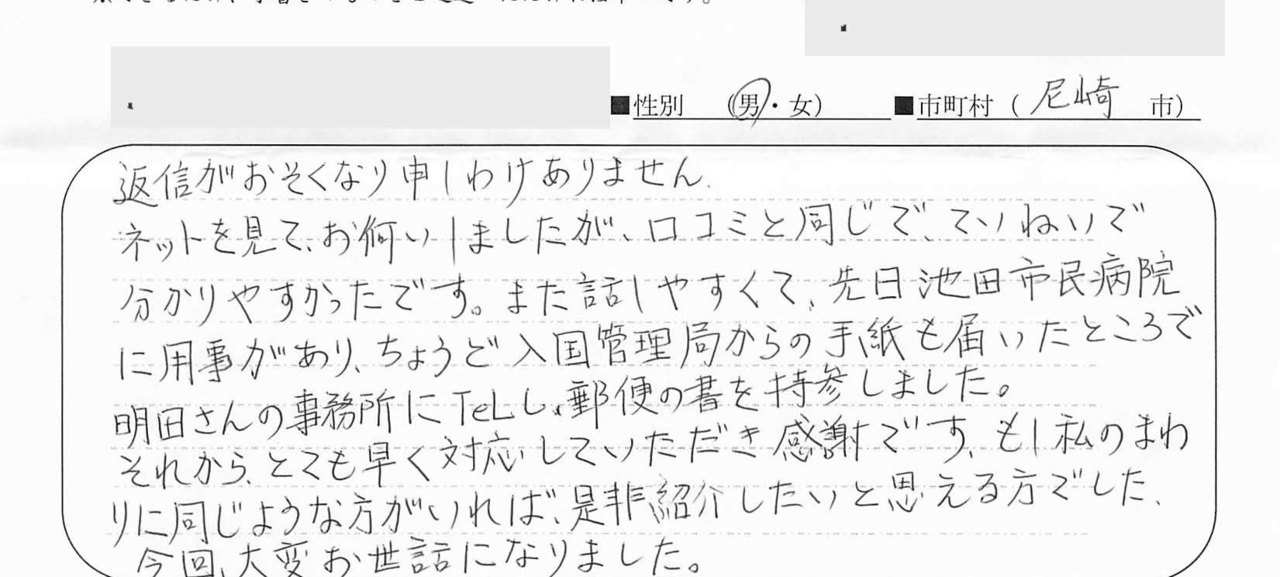 ■性別　（男・女）　■市町村（尼崎　市）
返信がおそくなり申しわけありません.
ネットを見て、お伺いしましたが、口コミと同じで、ていねいで
分かりやすかったです。また話しやすくて、先日池田市民病院
に用事があり、ちょうど入国管理局からの手紙も届いたところで
明田さんの事務所にTeLし、郵便の書を持参しました。
それから、とても早く対応していただき感謝です、もし私のまわ
りに同じような方がいれば、是非紹介したいと思える方でした、
今回、大変お世話になりました。